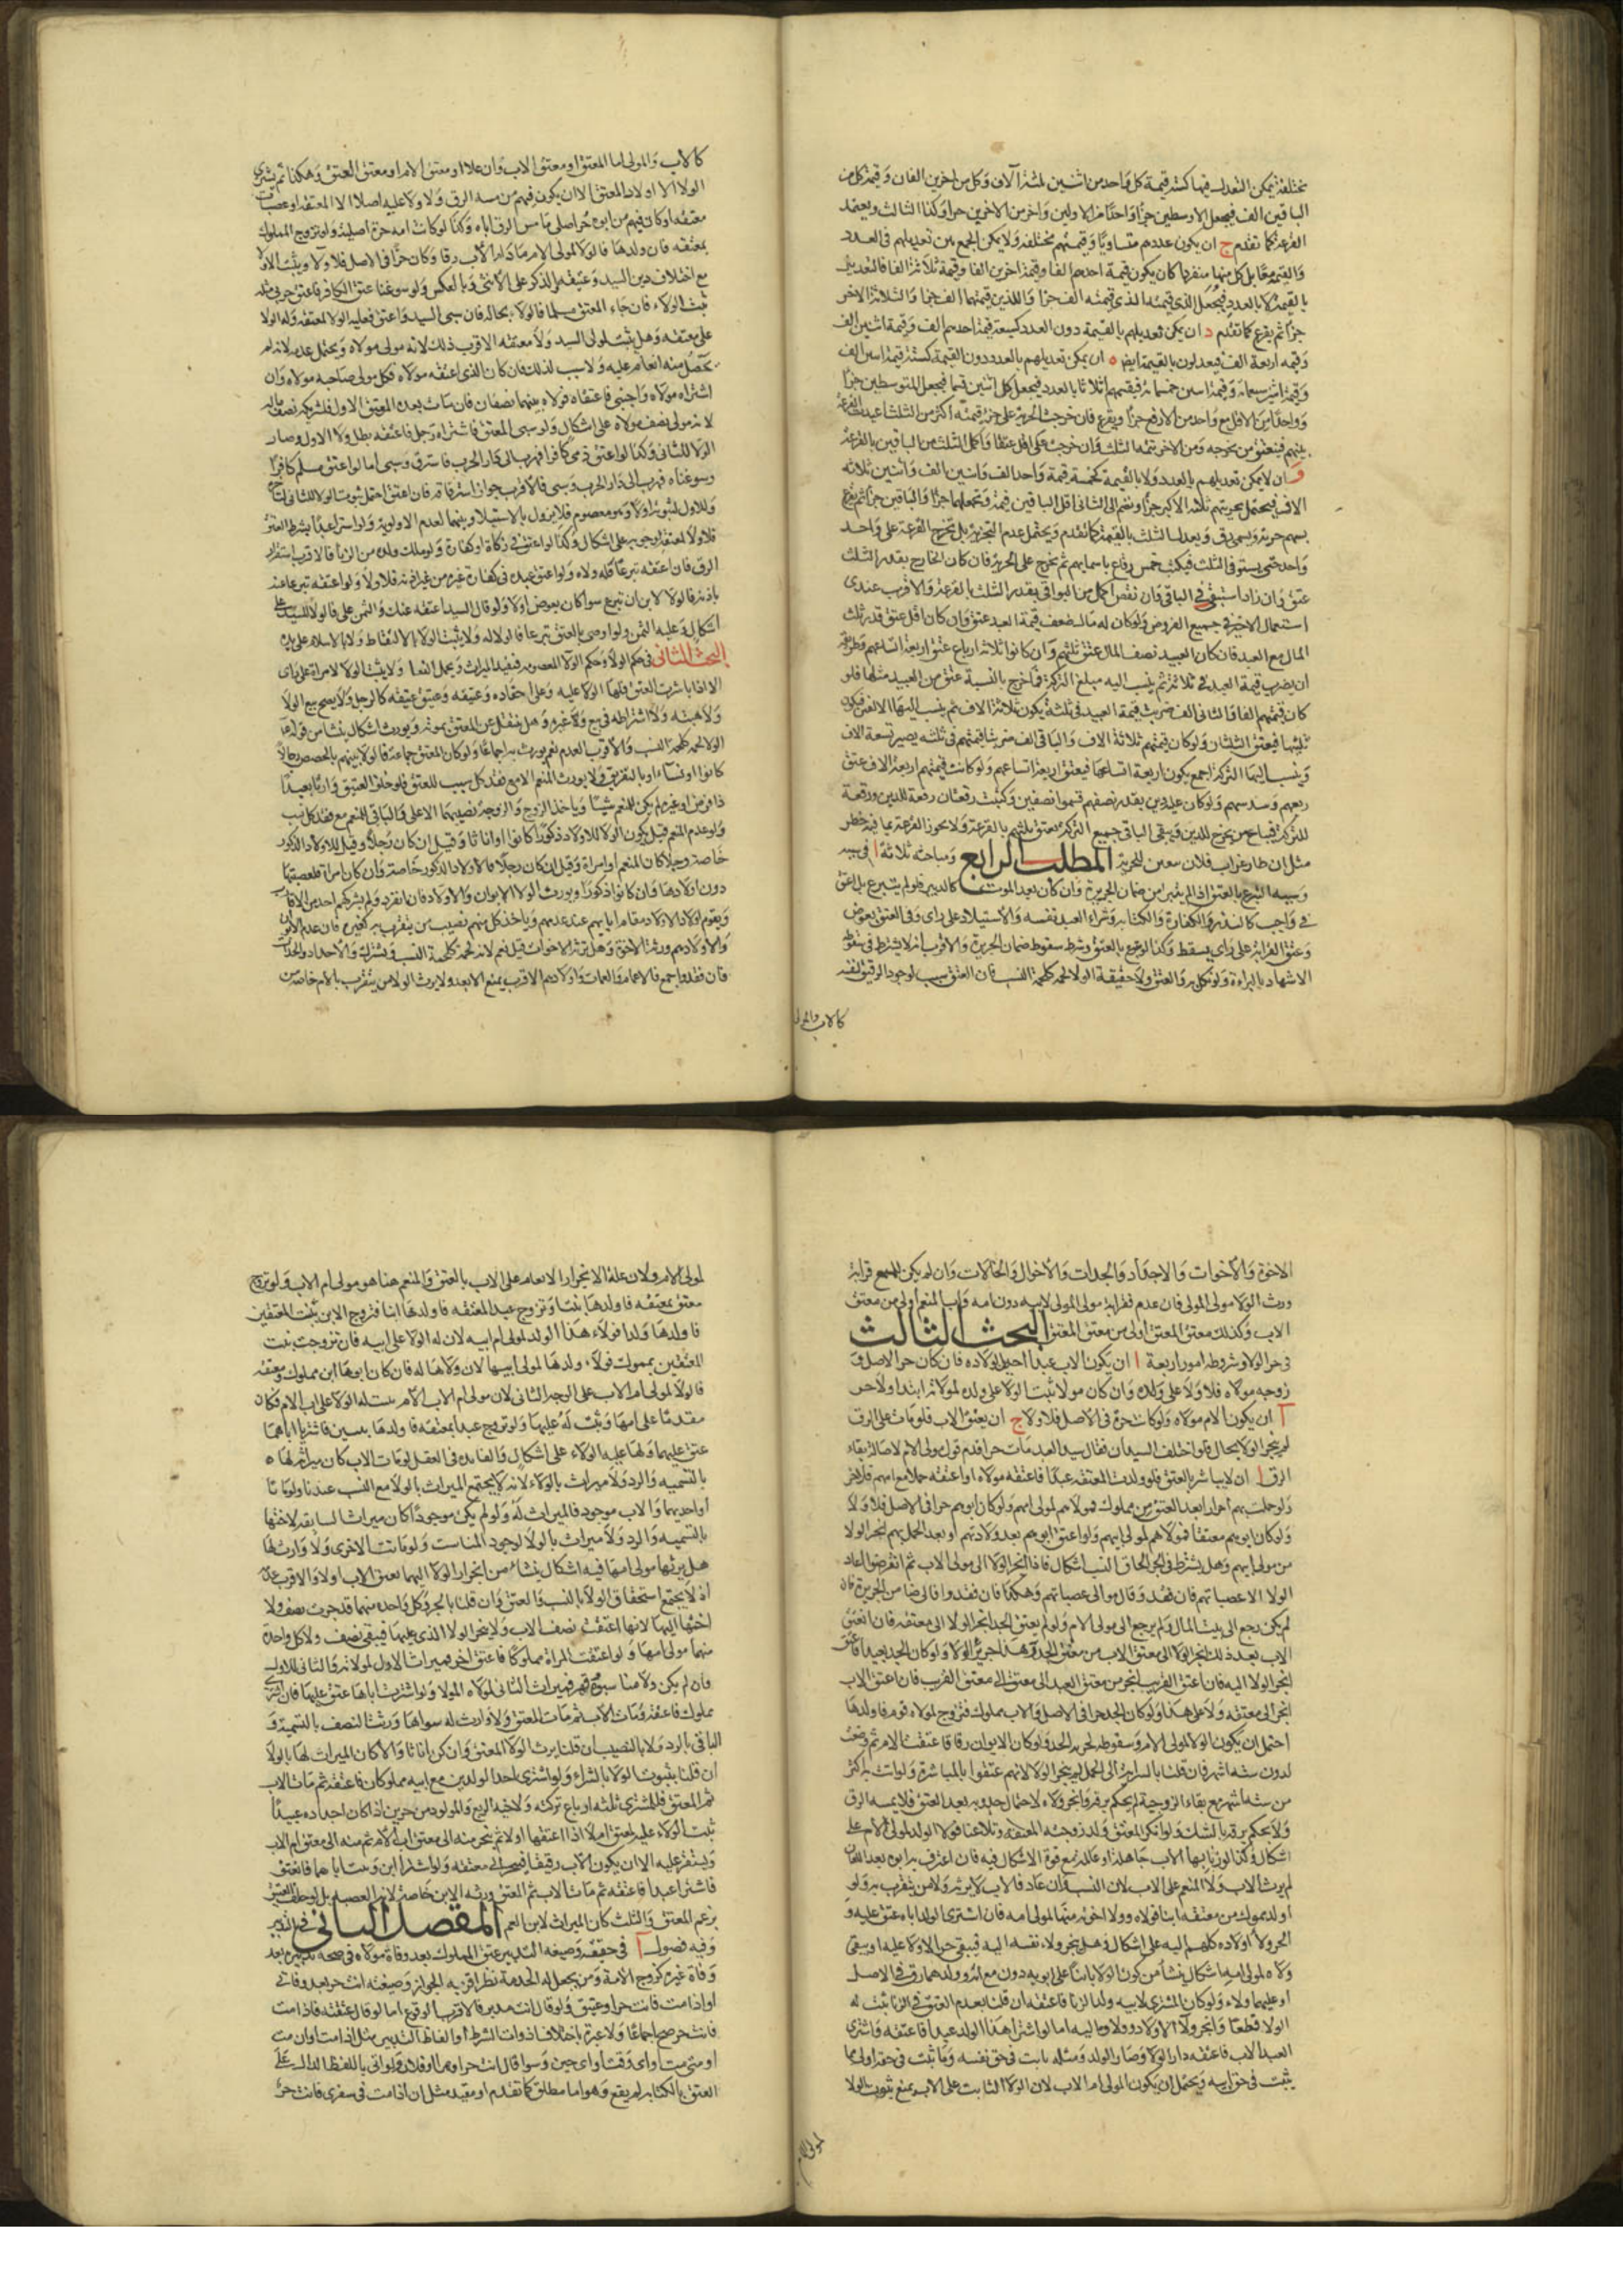 مختلفة يمكن التعديل فيها كستة قيمة كل واحد من اثنين ثلثة آلاف وكل من اخرين الفان وقيمة كل من
الباقين الف فيجعل الاوسطين جزا واحدا من الاولين واخر من الاخرين جزا وكذا الثالث ويعتمد
القرعة كما تقدم ج ان يكون عددهم متساويا وقيمتهم مختلفة ولا يمكن الجمع بين تعديلهم في العدد
والقيمة معا بل كل منهما منفردا كان يكون قيمة احدهم الفا وقيمة اخرين الفا وقيمة ثلاثة الفا فالتعديل
بالقيمة لا بالعدد فيجعل الذي قيمته الف جزا واللذين قيمتهما الف جزا والثلاثة الاخر
جزا ثم يقرع كما تقدم د ان يمكن تعديلهم بالقيمة دون العدد كسبعة قيمة احدهم الف وقيمة اثنين الف
وقيمة اربعة الف فيعدلون بالقيمة ايض ه ان يمكن تعديلهم بالعدد دون القيمة كستة قيمة اثنين الف
وقيمة اثنين سبعمائة وقيمة اثنين خمسمائة فيقسمهم اثلاثا بالعدد فيجعل كل اثنين قسما فيجعل المتوسطين جزا
وواحدا من الاقل مع واحد من الارفع جزا ويقرع فان خرجت الحرية على جزء قيمته اكثر من الثلث اعيدت القرعة
بينهم فيعتق من يخرجه ومن الاخر تتمة الثلث وان خرجت على اقل عتقا واكمل الثلث من الباقين بالقرعة
و ان لا يمكن تعديلهم بالعدد ولا بالقيمة كخمسة قيمة واحد الف واثنين الف واثنين ثلاثة
الاف فيحتمل تجزيتهم ثلثة الاكبر جزا ويضم الى الثاني اقل الباقين قيمة وتجعلهما جزا والباقين جزا ثم يقرع
بسهم حرية وسهمي رق ويعدل الثلث بالقيمة كما تقدم ويحتمل عدم التجزية بل تخرج القرعة على واحد
واحد حتى يستوفى الثلث فيكتب خمس رقاع باسمايهم ثم يخرج على الحرية فان كان الخارج بقدر الثلث
عتق وان زاد استسعى في الباقي وان نقص اكمل من البواقي بقدر الثلث بالقرعة والاقرب عندي
استعمال الاخير في جميع الفروض ولو كان له مال ضعف قيمة العبد عتق وان كان اقل عتق قدر ثلث
المال مع العبد فان كان العبيد نصف المال عتق ثلثهم وان كانوا ثلاثة ارباع عتق اربعة اتساعهم وطريقه
ان يضرب قيمة العبد في ثلاثة ثم ينسب اليه مبلغ التركة فما خرج بالنسبة عتق من العبيد مثلها فلو
كان قيمتهم الفا والثاني الف ضربت قيمة العبيد في ثلثة يكون ثلاثة الاف ثم ينسب اليها الالفين فيكون
ثلثيها فيعتق الثلثان ولو كان قيمتهم ثلاثة الاف والباقي الف ضربنا قيمتهم في ثلثه يصير تسعة الاف
وينسب اليها التركة اجمع يكون اربعة اتساعها فيعتق اربعة اتساعهم ولو كانت قيمتهم اربعة الاف عتق
ربعهم وسدسهم ولو كان عليه دين بقدر نصفهم قسموا نصفين وكتبت رقعتان رقعة للدين ورقعة
للتركة فيباع من يخرج للدين ويبقى الباقي جميع التركة يعتق ثلثهم بالقرعة ولا يجوز القرعة بما فيه خطر
مثل ان طار غراب فلان معين للحرية المطلب الرابع ومباحثه ثلاثة ا في سببه
وسببه التبرع بالعتق اذا لم يتبرأ من ضمان الجريرة وان كان بعد الموت كالتدبير فلو لم يتبرع بل اعتق
في واجب كالنذر والكفارة والكتابة وشراء العبد نفسه والاستيلاد على راى وفي العتق بعوض
وعتق القرابة على راى يسقط وكذا لو تبرع بالعتق وشرط سقوط ضمان الجريرة والاقرب انه لا يشترط في سقوطه
الاشهاد بالبراءة ولو نكل به والعتق ولا حقيقة الولا لحمة كلحمة النسب فان العتق سبب لوجود الرقيق لنفسه
كالاب والمولى
كالاب والمولى اما المعتق او معتق الاب وان علا او معتق الام او معتق المعتق وهكذا ثم يسري
الولا الى اولاد المعتق الا ان يكون فيهم من مسه الرق ولا ولا عليه اصلا الا لمعتقه او عصبات
معتقه او كان فيهم من ابوه حر اصلى ما مس الرق اباه وكذا لو كانت امه حرة اصلية ولو تزوج المملوك
بمعتقه فان ولدها فالولا لمولى الام ما دام الاب رقا وكان حرا في الاصل فلا ولا ويثبت الولا
مع اختلاف دين السيد وعتيقه والذكر على الانثى وبالعكس ولو سوغنا عتق الكافر فاعتق حربي مثله
ثبت الولاء فان جاء المعتق مسلما فالولاء بحاله فان سبى السيد واعتق فعليه الولا لمعتقه وله الولا
على معتقه وهل يثبت لمولى السيد ولاء معتقه الاقرب ذلك لانه مولى مولاه ويحتمل عدمه لانه لم
يحصل منه انعام عليه ولا سبب لذلك فان كان الذي اعتقه مولاه فكل مولى صاحبه مولاه وان
اشتراه مولاه واجنبي فاعتقاه فولاه بينهما نصفان فان مات بعده المعتق الاول فلشريكه نصف ماله
لانه مولى نصف مولاه على اشكال ولو سبى المعتق فاشتراه رجل فاعتقه بطل ولا الاول وصار
الولا للثاني وكذا لو اعتق ذمى كافرا فهرب الى دار الحرب فاسترق وسبى اما لو اعتق مسلم كافرا
وسوغناه فهرب الى دار الحرب وسبى فالاقرب جواز استرقاقه فان اعتق احتمل ثبوت الولا للثاني
وللاول لثبوته اولا وهو معصوم فلا يزول بالاستيلا وبينهما لعدم الاولوية ولو اشترى عبدا بشرط العتق
فلا ولا لمعتقه لوجوبه على اشكال وكذا لو اعتق في زكاة او كفارة ولو ملك ولده من الزنا فالاقرب استقرار
الرق فان اعتقه تبرعا فله ولاه ولو اعتق عبده في كفارة غيره من غير اذنه فلا ولا ولو اعتقه تبرعا عنه
باذنه فالولا للاذن ان تبرع سوا كان بعوض او لا ولو قال السيد اعتقه عنك والثمن على فالولا للسيد على
اشكال وعليه الثمن ولو اوصى بالعتق تبرعا فالولا له ولا يثبت الولا بالالتقاط ولا بالاسلام على يده
البحث الثاني في حكم الولا وحكم الولا العصوبة فيفيد الميراث وتحمل العقل ولا يثبت الولا لامراة على راى
الا اذا باشرت العتق فلها الولا عليه وعلى احفاده وعتيقه وعتيق عتيقه كالرجل ولا يصح بيع الولا
ولا هبته ولا اشتراطه في بيع ولا غيره وهل ينتقل عن المعتق بموته ويورث اشكال ينشا من قوله
الولا لحمة كلحمة النسب والاقرب العدم نعم يورث به اجماعا ولو كان المعتق جماعة فالولا بينهم بالحصص رجالا
كانوا او نساء او بالتفريق ولا يورث المنعم الا مع فقد كل نسب للعتيق فلو خلف العتيق وارثا بعيدا
ذا فرض او غيره لم يكن للمنعم شيئا وياخذ الزوج والزوجة نصيبهما الاعلى والباقي للمنعم مع فقد كل نسب
ولو عدم المنعم قيل يكون الولا للاولاد ذكورا كانوا او اناثا وقيل ان كان رجلا وقيل للاولاد الذكور
خاصة رجلا كان المنعم او امراة وقيل ان كان رجلا فالاولاد الذكور خاصة وان كان امراة فلعصبتها
دون اولادها وان كانوا ذكورا ويورث الولا الابوان والاولاد فان انفرد ولم يشركهم احد من الاقارب
ويقوم اولاد الاولاد مقام ابايهم عند عدمهم وياخذ كل منهم نصيب من يتقرب به كغيره فان عدم الابوان
والاولاد هم ورثة الاخوة وهل ترثه الاخوات قيل نعم لانه لحمة كلحمة النسب ويشترك والاجداد والجدات
فان فقدوا اجمع فالاعمام والعمات واولادهم الاقرب يمنع الابعد ولا يرث الولا من يتقرب بالام خاصة من
الاخوة والاخوات والاجداد والجدات والاخوال والخالات وان لم يكن للمنعم قرابة
ورث الولا مولى المولى فان عدم فقرابة مولى المولى لابيه دون امه واب المنعم اولى من معتق
الاب وكذلك معتق المعتق اولى من معتق اب المعتق البحث الثالث
في جر الولا وشروطه امور اربعة ا ان يكون الاب عبدا حين الولاده فان كان حر الاصل و
زوجه مولاه فلا ولا على ولده وان كان مولا ثبت الولا على ولده لمواليه ابتدا ولا جر
ب ان يكون الام مولاه ولو كانت حرة في الاصل فلا ولا ج ان يعتق الاب فلو مات على الرق
لم ينجر الولا بحال ولو اختلف السيدان فقال سيد العبد مات حرا قدم قول مولى الام لاصالة بقاء
الرق د ان لا يباشر بالعتق فلو ولدت المعتقه عبدا فاعتقه مولاه او اعتقه حملا مع امه فلا ينجر
ولو حملت بهم احرارا بعد العتق من مملوك فولاهم لمولى امهم ولو كان ابوهم حرا في الاصل فلا ولا
ولو كان ابوهم معتقا فولاهم لمولى ابيهم ولو اعتق ابوهم بعد ولادتهم او بعد الحمل بهم انجر الولا
من مولى امهم وهل يشترط في الجر الحاق النسب اشكال فاذا انجر الولا الى مولى الاب ثم انقرضوا عاد
الولا الى عصباتهم فان فقد وقال موالى عصباتهم وهكذا فان فقدوا فالى ضامن الجريرة فان
لم يكن رجع الى بيت المال ولم يرجع الى مولى الام ولو لم يعتق الجد انجر الولا الى معتقه فان اعتق
الاب بعد ذلك انجر الولا الى معتق الاب من معتق الجد وهذا جر جر الولا ولو كان الجد بعيدا فاعتق
انجر الولا اليه فان اعتق القريب انجر من معتق البعيد الى معتق القريب فان اعتق الاب
انجر الى معتقه ولا على هذا ولو كان الجد حرا في الاصل والاب مملوك فتزوج لمولاه قوم فاولدها
احتمل ان يكون الولا لمولى الام وسقوطه لحرية الجد ولو كان الابوان رقا فاعتقت الام ثم وضعت
لدون سته اشهر فان قلنا بالسراية الى الحمل لم ينجر الولا لانهم عتقوا بالمباشرة ولو اتت به لاكثر
من سته اشهر مع بقاء الزوجية لم يحكم برقه وانجر ولاه لاحتمال حدوثه بعد العتق فلا يمسه الرق
ولا يحكم برقه بالشك ولو انكر المعتق ولد زوجته المعتقه وتلاعنا فولا الولد لمولى الام على
اشكال وكذا لو زنا بها الاب جاهلة او عالمة مع قوة الاشكال فيه فان اعترف به ابوه بعد اللعان
لم يرث الاب ولا المنعم على الاب لان النسب وان عاد فالاب لا يرثه ولا من يتقرب به ولو
اولد مملوك من معتقه ابنا فولاه وولا اخوته منها لمولى امه فان اشترى الولد اباه عتق عليه و
انجر ولا اولاده كلهم اليه على اشكال وهل ينجر ولاء نفسه اليه فيبقى حرا لا ولا عليه او يبقى
ولاه لمولى امه اشكال ينشا من كون الولا ثابتا على ابويه دون مع انه ولد هما رق في الاصل
او عليهما ولاء ولو كان المشترى لابيه ولد الزنا فاعتقه ان قلنا بعدم العتق في الزنا ثبت له
الولا قطعا وانجر ولاء الاولاد ولا مواليه اما لو اشترى هذا الولد عبدا فاعتقه واشترى
العبد الاب فاعتقه دار الولا وصار الولد ومثله ثابت في حق نفسه وما ثبت في حقه اولى مما
يثبت في حق ابيه ويحتمل ان يكون المولى ام الاب لان الولا الثابت على الاب يمنع ثبوت الولا
لمولى الام
لمولى الام ولان علة الانجرار الانعام على الاب بالعتق والمنعم هنا هو مولى ام الاب ولو تزوج
معتق بمعتقه فاولدها بنتا وتزوج عبد المعتقه فاولدها ابنا فتزوج الابن ببنت المعتقين
فاولدها ولدا فولاء هذا الولد لمولى ام ابيه لان له الولا على ابيه فان تزوجت بنت
المعتقين بمملوك فولاء ولدها لمولى ابيها لان ولاها له فان كان ابوها ابن مملوك ومعتقه
فالولا لمولى ام الاب على الوجه الثاني لان مولى ام الاب الام يثبت له الولا على اب الام فكان
مقدما على امها وثبت له عليها ولو تزوج عبد بمعتقه فاولدها بنتين فاشتريا اباهما
عتق عليهما ولهما عليه الولاء على اشكال والفايده في العقل لو مات الاب كان ميراثه لهما
بالتسمية والرد ولا ميراث بالولاء لانه لا يجتمع الميراث بالولا مع النسب عندنا ولو ماتا
او احديهما والاب موجود فالميراث له ولو لم يكن موجودا كان ميراث السابقة لاختها
بالتسمية والرد ولا ميراث بالولا لوجود المناسب ولو ماتت الاخرى ولا وارث لها
هل يرثها مولى امها فيه اشكال ينشاء من انجرار الولا اليهما بعتق الاب او لا والاقرب عدمه
اذ لا يجتمع استحقاق الولا بالنسب والعتق وان قلنا بالجر فكل واحدة منهما قد جرت نصف ولا
اختها اليها لانها اعتقت نصف الاب ولا ينجر الولا الذي عليها فيبقى نصف ولا كل واحدة
منهما لمولى امها ولو اعتقت المراة مملوكا فاعتق اخر فميراث الاول لمولاته والثاني للاول
فان لم يكن ولا مناسبوهم فهو فميراث الثاني لمولاه المولا ولو اشترت اباها عتق عليها فان اشترى
مملوك فاعتقه ومات الاب ثم مات المعتق ولا وارث له سواها ورثت النصف بالتسمية و
الباقي بالرد ولا بالتعصيب ان قلنا يرث الولا المعتق وان كن اناثا والا كان الميراث لها بالولا
ان قلنا بثبوت الولا بالشراء ولو اشترى احد الولدين مع ابيه مملوكا فاعتقه ثم مات الاب
ثم المعتق فللمشترى ثلثة ارباع تركته ولاخيه الربع والمولود من حرين اذا كان اجداده عبيدا
ثبت الولاء عليه لمعتق ام ام اذا اعتقها اولا ثم ينجر منه الى معتق اب الام ثم منه الى معتق ام الاب
ويستقر عليه الا ان يكون الاب رقيقا فينجر الى معتقه ولو اشترى ابن وبنت اباهما فانعتق
فاشترى عبدا فاعتقه ثم مات الاب ثم المعتق ورثه الابن خاصة لانه العصبة بل لو خلف المعتق
بزعم المعتق والثلث كان الميراث لابن العم المقصد الثاني في التدبير
وفيه فصول ا في حقيقته وصيغته التدبير عتق المملوك بعد وفاة مولاه في صحة تدبيره بعد
وفاة غيره كزوج الامة ومن يجعل له الخدمة نظر اقربه الجواز وصيغته انت حر بعد وفاتي
او اذا مت فانت حر او عتيق ولو قال انت مدبر فالاقرب الوقوع اما لو قال عقبه فاذا مت
فانت حر صح اجماعا ولا عبرة باختلاف ادوات الشرط او الفاظ التدبير مثل اذا مت او ان مت
او متى مت او اى وقت او اى حين وسوا قال انت حر او هذا او فلان ولو اتى باللفظ الدال على
العتق بالكتابة لم يقع وهو اما مطلق كما تقدم او مقيد مثل ان اذا مت في سفري فانت حر